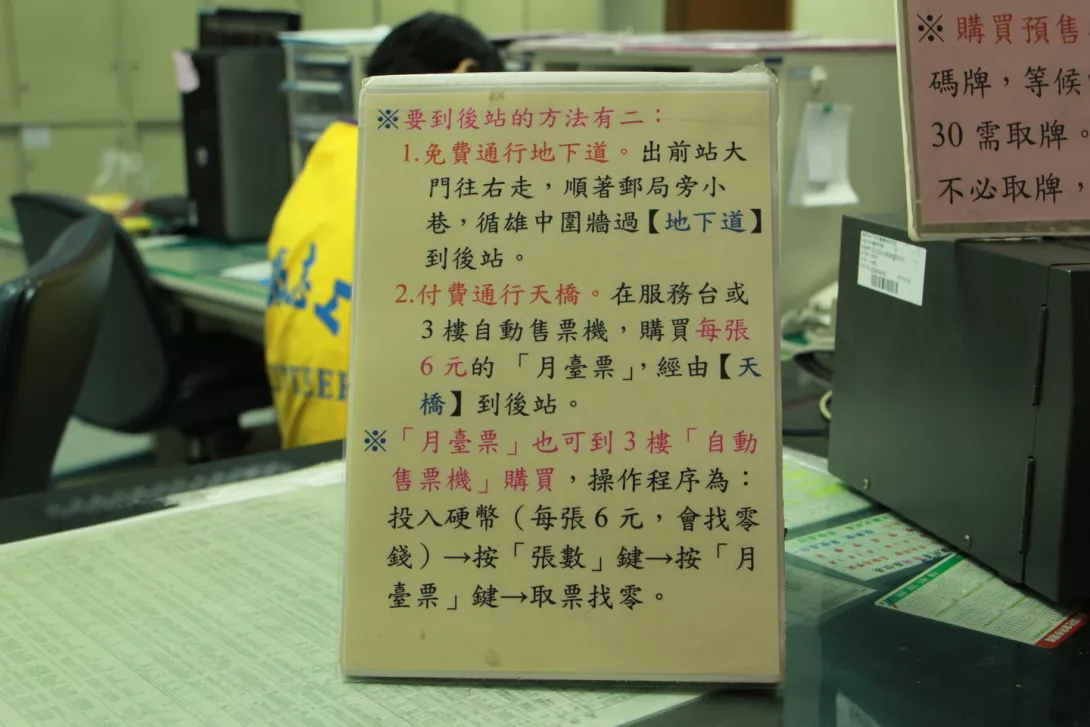 ※要到後站的方法有二：
1.免費通行地下道。出前站大
門往右走，順著郵局旁小
巷，循雄中圍牆過【地下道】
到後站。
2.付費通行天橋。在服務台或
3樓自動售票機，購買每張
6元的「月臺票」，經由【天
橋】到後站。
※「月臺票」也可到3樓「自動
售票機」購買，操作程序為：
投入硬幣（每張6元，會找零
錢）→按「張數」鍵→按「月
臺票」鍵→取票找零。
※購買預售
碼牌，等候
30需取牌。
不必取牌，